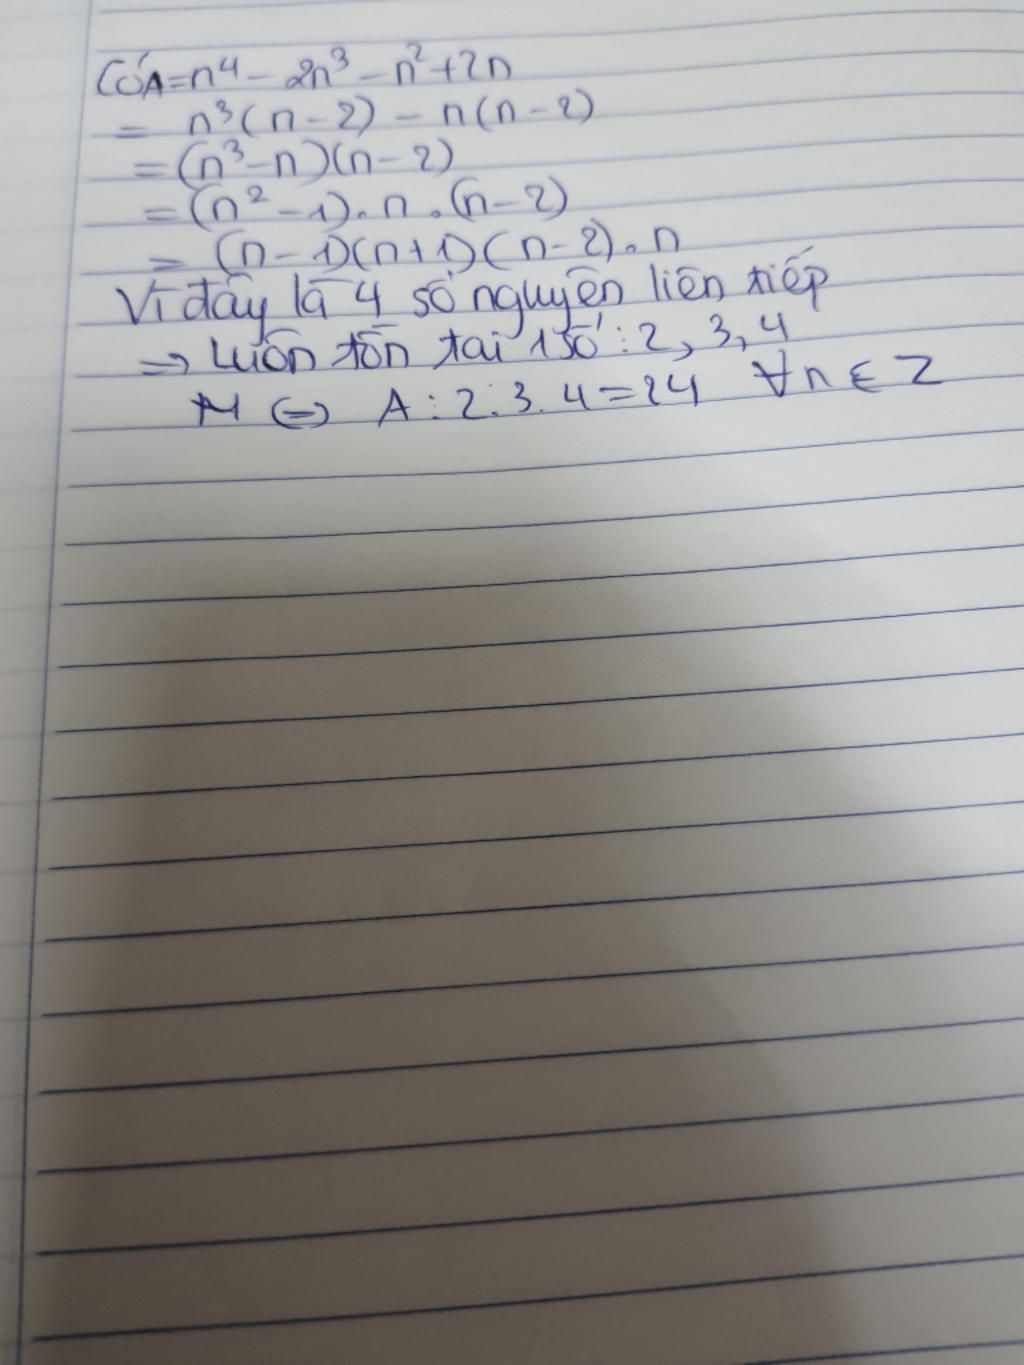 Có A=n⁴ – 2n³ – n²+2n
= n³(n – 2) – n(n – 2)
=(n³–n)(n–2)
=(n² –1).n.(n–2)
= (n–1)(n+1)(n–2).n
Vì đây là 4 số nguyên liên tiếp
=> Luôn tồn tại 1 số : 2, 3, 4
(=) A : 2.3.4=24 ∀n ∈ Z